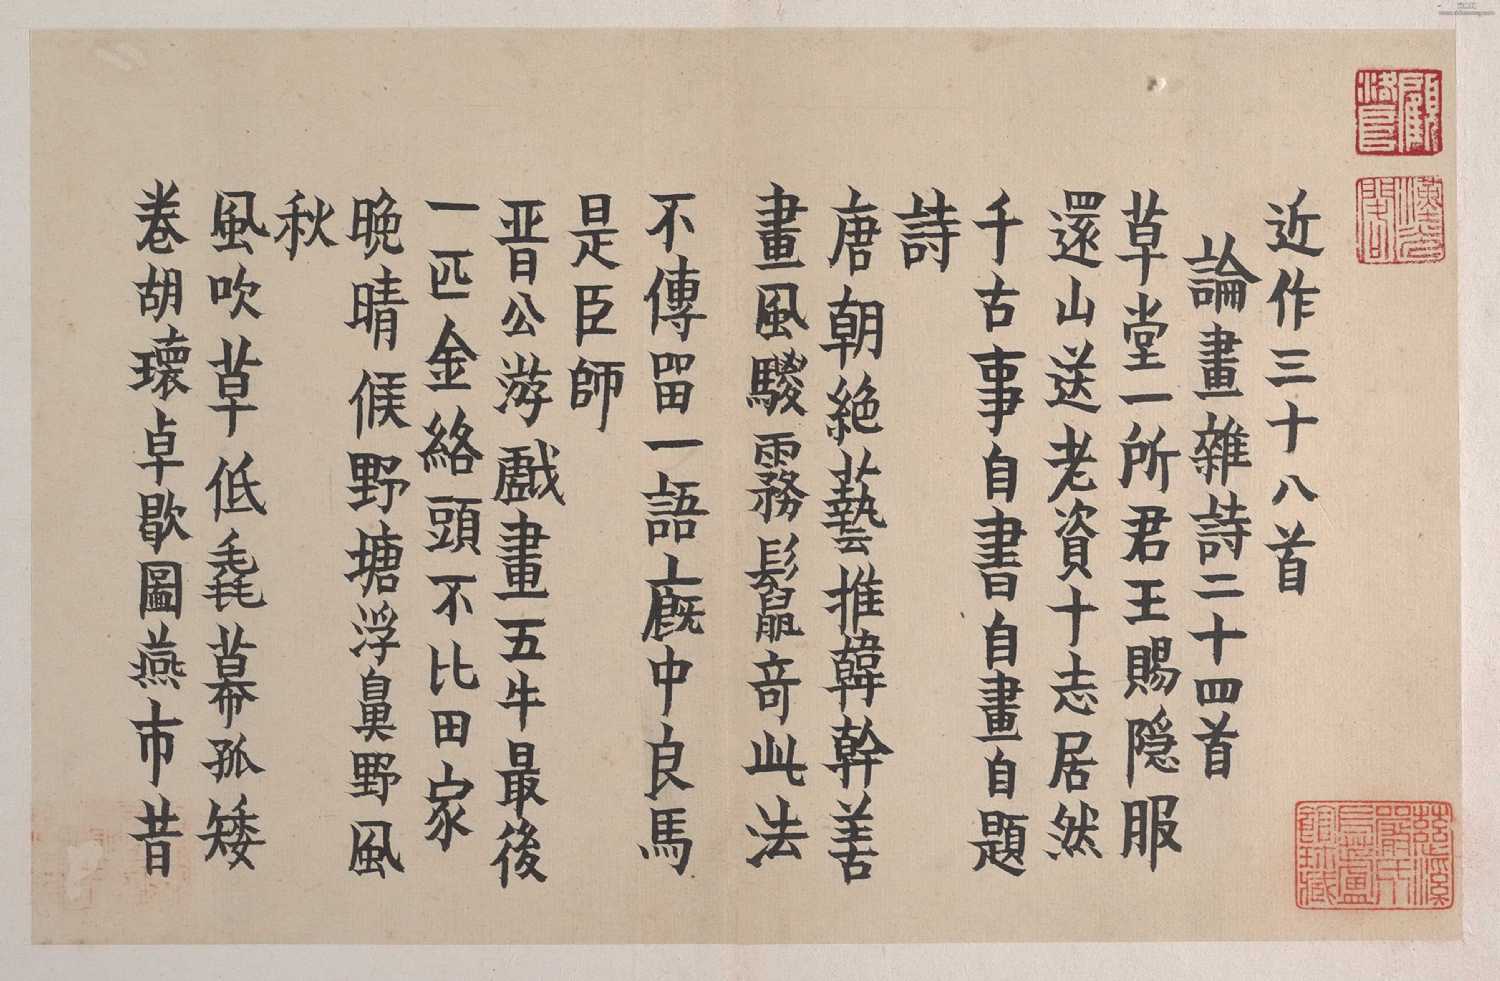 近作三十八首
論畫雜詩二十四首
草堂一所君王賜隱服
還山送老資十志居然
千古事自書自畫自題
詩
唐朝絕藝推韓幹善
畫風騣霧鬛竒此法
不傳留一語廄中良馬
是臣師
晋公游戲畫五牛最後
一匹金絡頭不比田家
晚晴候野塘浮鼻野風
秋
風吹草低毳幕孤矮
卷胡瓌卓歇圖燕市昔